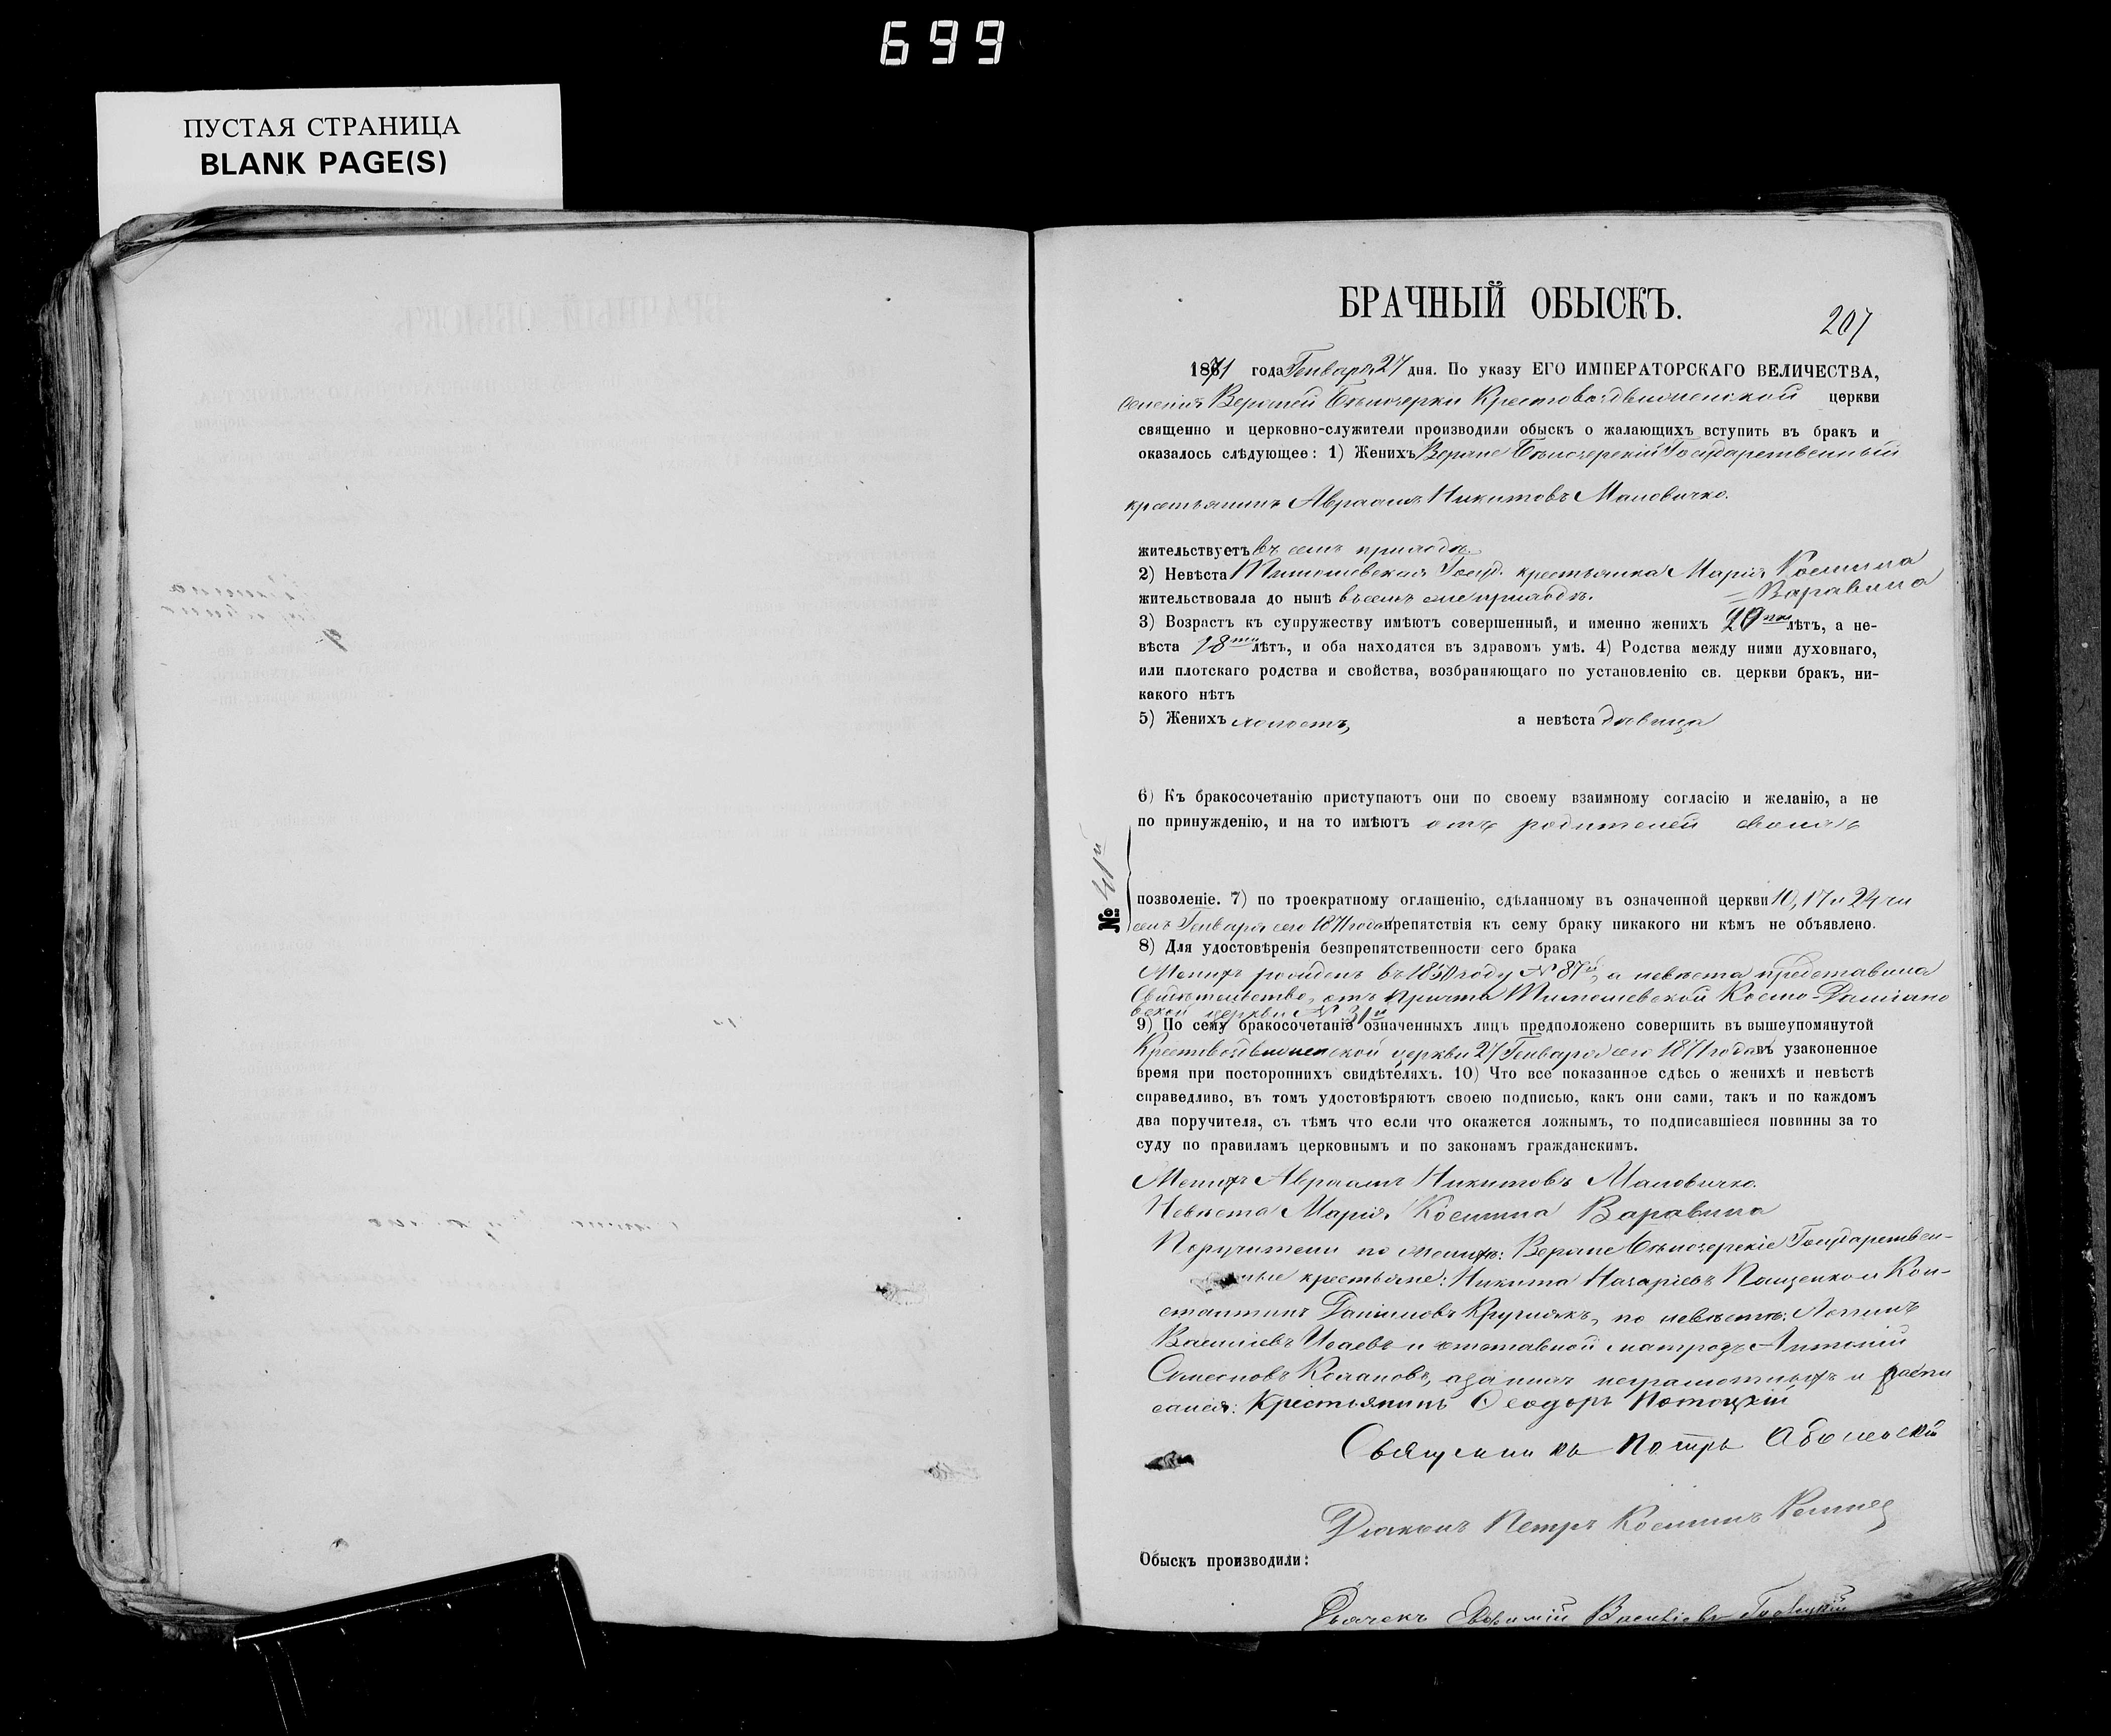 699
ПУСТАЯ СТРАНИЦА
BLANK PAGE(S)
БРАЧНЫЙ ОБЫСКЪ.
207
1871 года Генваря 27 дня. По указу ЕГО ИМПЕРАТОРСКАГО ВЕЛИЧЕСТВА,
селенія Верхней Бѣлозерки Крестовоздвиженской церкви
священно и церковно-служители производили обыскъ о жалающихъ вступить въ бракъ и
оказалось слѣдующее: 1) Женихъ Верхне Бѣлозерскій Государственный
крестьянинъ Авраамъ Никитовъ Маловичко.
жительствуетъ въ семъ приходѣ
2) Невѣста Тимошевская Госуд. крестьянка Марія Космина
Варавина
жительствовала до нынѣ въ семъ же приходѣ.
3) Возрастъ къ супружеству имѣютъ совершенный, и именно женихъ 20ти лѣтъ, а не-
вѣста 18ти лѣтъ, и оба находятся въ здравомъ умѣ. 4) Родства между ними духовнаго,
или плотскаго родства и свойства, возбраняющаго по установленію св. церкви бракъ, ни-
какого нѣтъ
5) Женихъ холостъ, а невѣста дѣвица
6) Къ бракосочетанію приступаютъ они по своему взаимному согласію и желанію, а не
по принужденію, и на то имѣютъ отъ родителей своихъ
позволеніе. 7) по троекратному оглашенію, сдѣланному въ означенной церкви 10, 17 и 24 чи
№ 41й
селъ Генваря сего 1871 года препятствія къ сему браку никакого ни кѣмъ не объявлено.
8) Для удостовѣренія безпрепятственности сего брака
Женихъ рожденъ въ 1850 году № 87й, а невѣста представила
Свидѣтельство, отъ причта Тимошевской Космо-Даміано
вской церкви № 31й
9) По сему бракосочетаніе означенныхъ лицъ предположено совершить въ вышеупомянутой
Крестовоздвиженской церкви 27 Генваря сего 1871 года въ узаконенное
время при постороннихъ свидѣтеляхъ. 10) Что все показанное сдѣсь о женихѣ и невѣстѣ
справедливо, въ томъ удостовѣряютъ своею подписью, какъ они сами, такъ и по каждомъ
два поручителя, съ тѣмъ что если что окажется ложнымъ, то подписавшіеся повинны за то
суду по правиламъ церковнымъ и по законамъ гражданскимъ.
Женихъ Авраамъ Никитовъ Маловичко.
Невѣста Марія Космина Варавина
Поручители по женихѣ: Верхне Бѣлозерскіе Государствен-
ные крестьяне: Никита Назаріевъ Пащенко и Кон-
стантинъ Даніиловъ Кругликъ, по невѣстѣ: Логинъ
Василіевъ Исаевъ и отставной матрозъ Антоній
Симеоновъ Романовъ, а за нихъ неграмотныхъ и распи
сался: Крестьянинъ Ѳеодоръ Потоцкій
Священникъ Петръ
Діаконъ Петръ Косминъ
Обыскъ производили:
Дьячекъ Евфимій Василіевъ